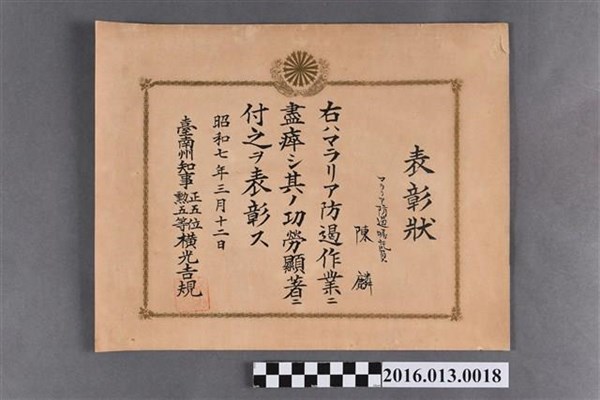 表彰狀
マラリア防遏
陳麟
右ハマラリア防遏作業ニ
盡瘁シ其ノ功勞顯著ニ
付之ヲ表彰ス
昭和七年三月十二日
臺南州知事正五位勲五等橫光吉規
2016.013.0018